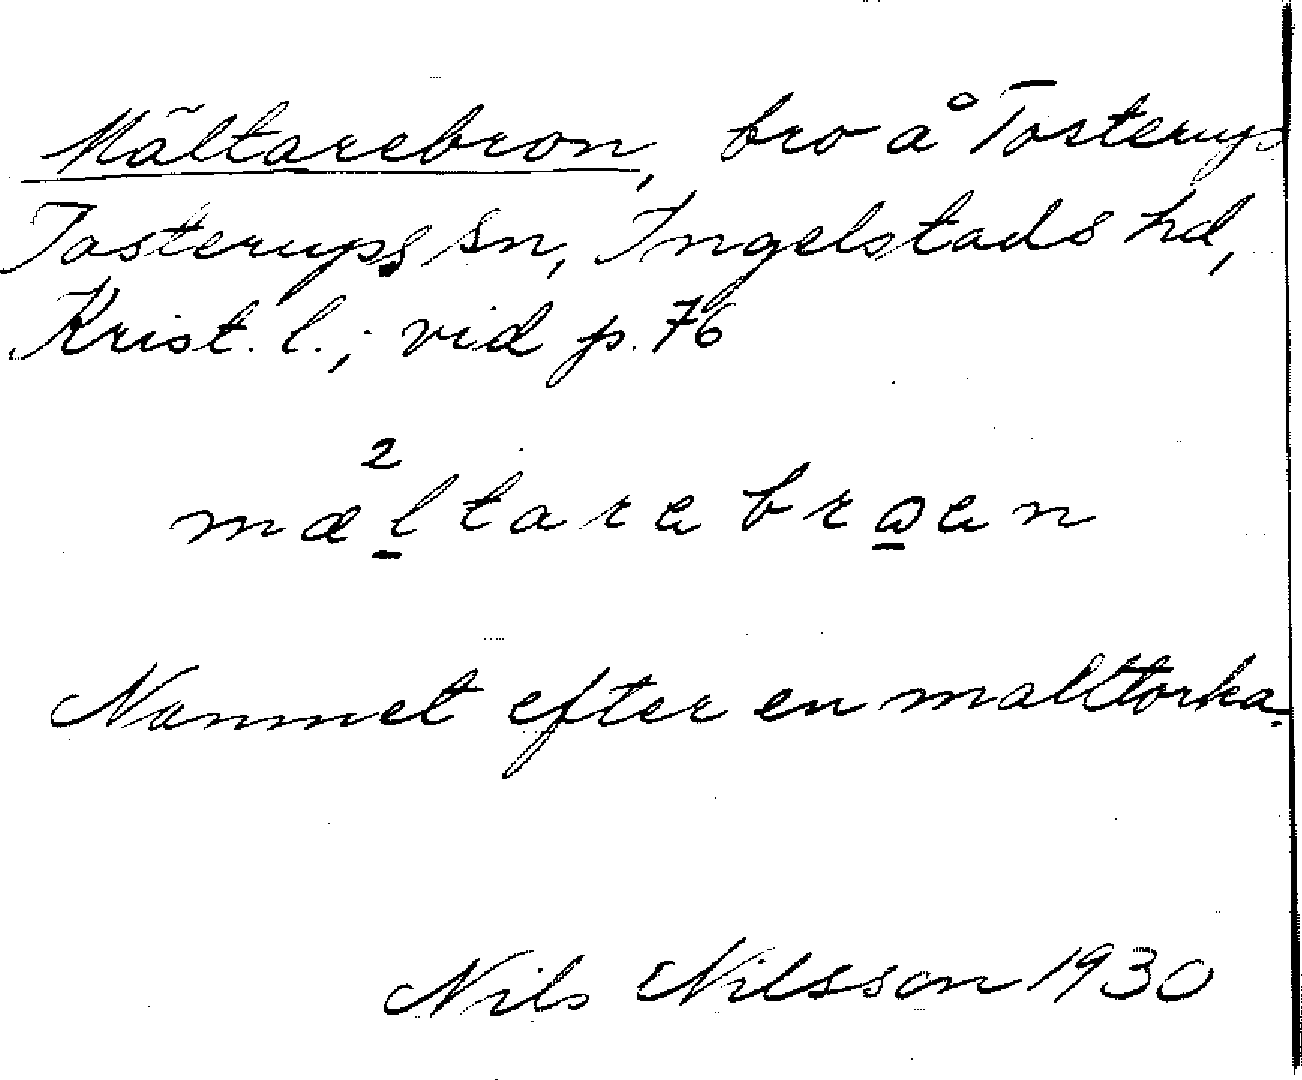 Mältarebron, bro å Tosterups
Tosterups sn, Ingelstads hd,
Krist. l.; vid p. 76
2
mæltarebroen
Namnet efter en malttorka.
Nils Nilsson 1930